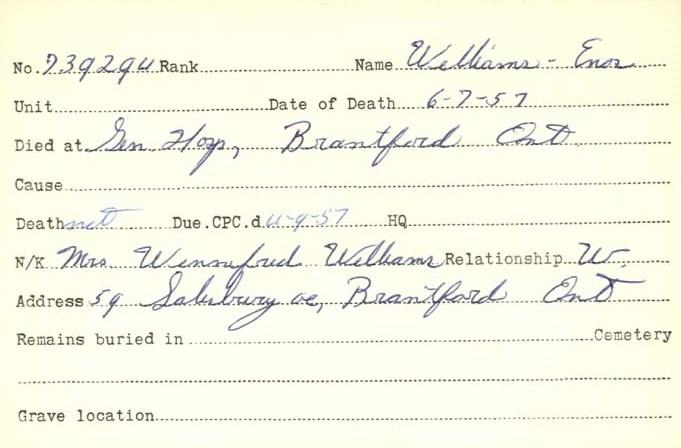 No. 739294 Rank Name Williams - Enos
Unit Date of Death 6-7-57
Died at Gen Hosp, Brantford Ont.
Cause
Death not Due. CPC.d 4-9-57 HQ
N/K Mrs Winnifred Williams Relationship W.
Address 59 Salisbury ave, Brantford Ont
Remains buried in Cemetery
Grave location